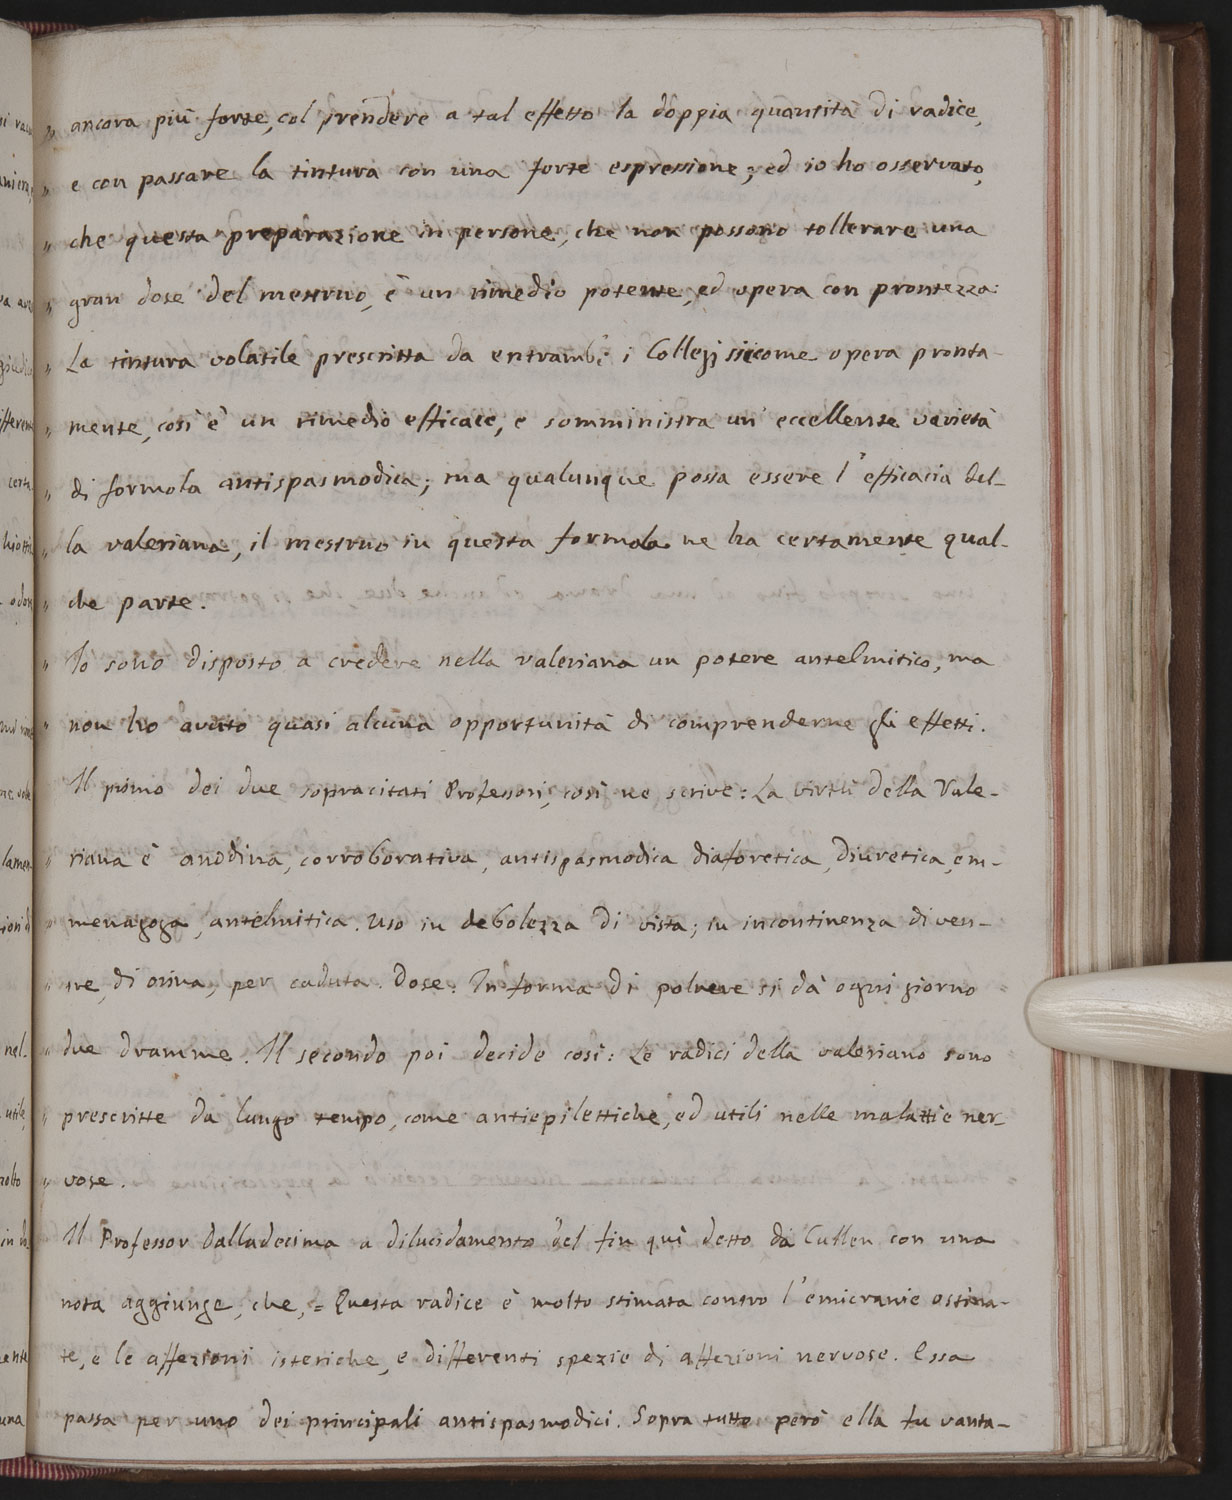 „ ancora più forte, col prendere a tal effetto la doppia quantità di radice,
„ e con passare la tintura con una forte espressione; ed io ho osservato,
„ che questa preparazione in persone, che non possono tollerare una
„ gran dose del mestruo, è un rimedio potente, ed opera con prontezza.
„ La tintura volatile prescritta da entrambi i Collegj siccome opera pronta-
„ mente, così è un rimedio efficace, e somministra un' eccellente varietà
„ di formola antispasmodica; ma qualunque possa essere l'efficacia del-
„ la valeriana, il mestruo in questa formola ne ha certamente qual-
„ che parte.
„ Io sono disposto a credere nella valeriana un potere antelmitico, ma
„ non ho avuto quasi alcuna opportunità di comprenderne gli effetti.
Il primo dei due sopracitati Professori, così ne scrive: La virtù della Vale-
„ riana è anodina, corroborativa, antispasmodica diaforetica, diuretica, em-
„ menagoga, antelmitica. Uso in debolezza di vista; in incontinenza di ven-
„ tre, di orina, per caduta. Dose. In forma di polvere si dà ogni giorno
„ due dramme. Il secondo poi decide così: Le radici della valeriano sono
„ prescritte da lungo tempo, come antiepilettiche, ed utili nelle malattie ner-
„ vose.
Il Professor Dalladecima a dilucidamento del fin quì detto da Cullen con una
nota aggiunge, che, = Questa radice è molto stimata contro l'emicranie ostina-
te, e le affezioni isteriche, e differenti spezie di affezioni nervose. Essa
passa per uno dei principali antispasmodici. Sopra tutto però ella fu vanta-